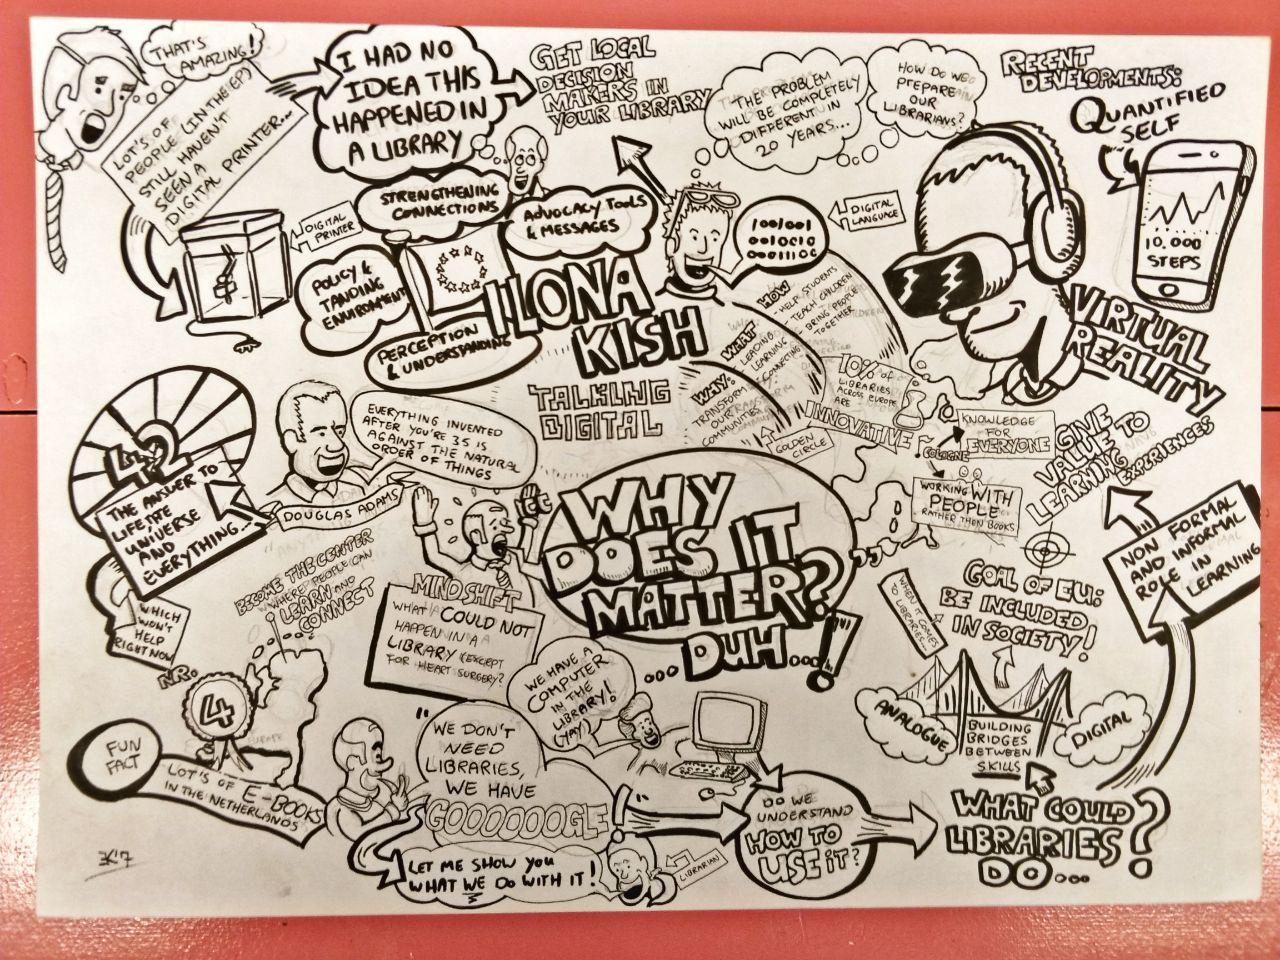 THAT'S
AMAZING!
LOT'S OF
PEOPLE (IN THE EP)
STILL HAVEN'T
SEEN A
DIGITAL PRINTER...
I HAD NO
IDEA THIS
HAPPENED IN
A LIBRARY
GET LOCAL
DECISION
MAKERS IN
YOUR LIBRARY
THE PROBLEM
WILL BE COMPLETELY
DIFFERENT IN
20 YEARS...
HOW DO WE
PREPARE
OUR
LIBRARIANS?
RECENT
DEVELOPMENTS:
QUANTIFIED
SELF
10.000
STEPS
DIGITAL
PRINTER
STRENGTHENING
CONNECTIONS
ADVOCACY TOOLS
& MESSAGES
POLICY &
TANDING
ENVIROMENT
PERCEPTION
& UNDERSTANDING
1001001
0010010
0001110
DIGITAL
LANGUAGE
ILONA
KISH
TALKING
DIGITAL
HOW
- HELP STUDENTS
- TEACH CHILDREN
- BRING PEOPLE
TOGETHER
WHAT
LEADING
LEARNING
CONNECTING
WHY:
TRANSFORM
OUR
COMMUNITIES
GOLDEN
CIRCLE
10% of
LIBRARIES
ACROSS EUROPE
ARE
INNOVATIVE
VIRTUAL
REALITY
COLOGNE
KNOWLEDGE
FOR
EVERYONE
WORKING WITH
PEOPLE
RATHER THEN BOOKS
GIVE
VALUE TO
LEARNING
EXPERIENCES
NON FORMAL
AND INFORMAL
ROLE IN
LEARNING
42
THE ANSWER TO
LIFE THE
UNIVERSE
AND
EVERYTHING...
WHICH
WON'T
HELP
RIGHT NOW
EVERYTHING INVENTED
AFTER YOU'RE 35 IS
AGAINST THE NATURAL
ORDER OF THINGS
DOUGLAS ADAMS
BECOME THE CENTER
WHERE PEOPLE CAN
LEARN AND
CONNECT
MINDSHIFT
WHAT COULD NOT
HAPPEN IN A
LIBRARY (EXCEPT
FOR HEART SURGERY?
WHY
DOES IT
MATTER?
...DUH...!!
WHEN IT COMES
TO LIBRARIES...
GOAL OF EU:
BE INCLUDED
IN SOCIETY!
ANALOGUE
BUILDING
BRIDGES
BETWEEN
SKILLS
DIGITAL
NR.
4
FUN
FACT
LOT'S OF E-BOOKS
IN THE NETHERLANDS
WE HAVE A
COMPUTER
IN THE
LIBRARY!
(YAY)
"WE DON'T
NEED
LIBRARIES,
WE HAVE
GOOOOOOGLE!"
LET ME SHOW YOU
WHAT WE DO WITH IT!
LIBRARIAN
DO WE
UNDERSTAND
HOW TO
USE IT?
WHAT COULD
LIBRARIES
DO...?